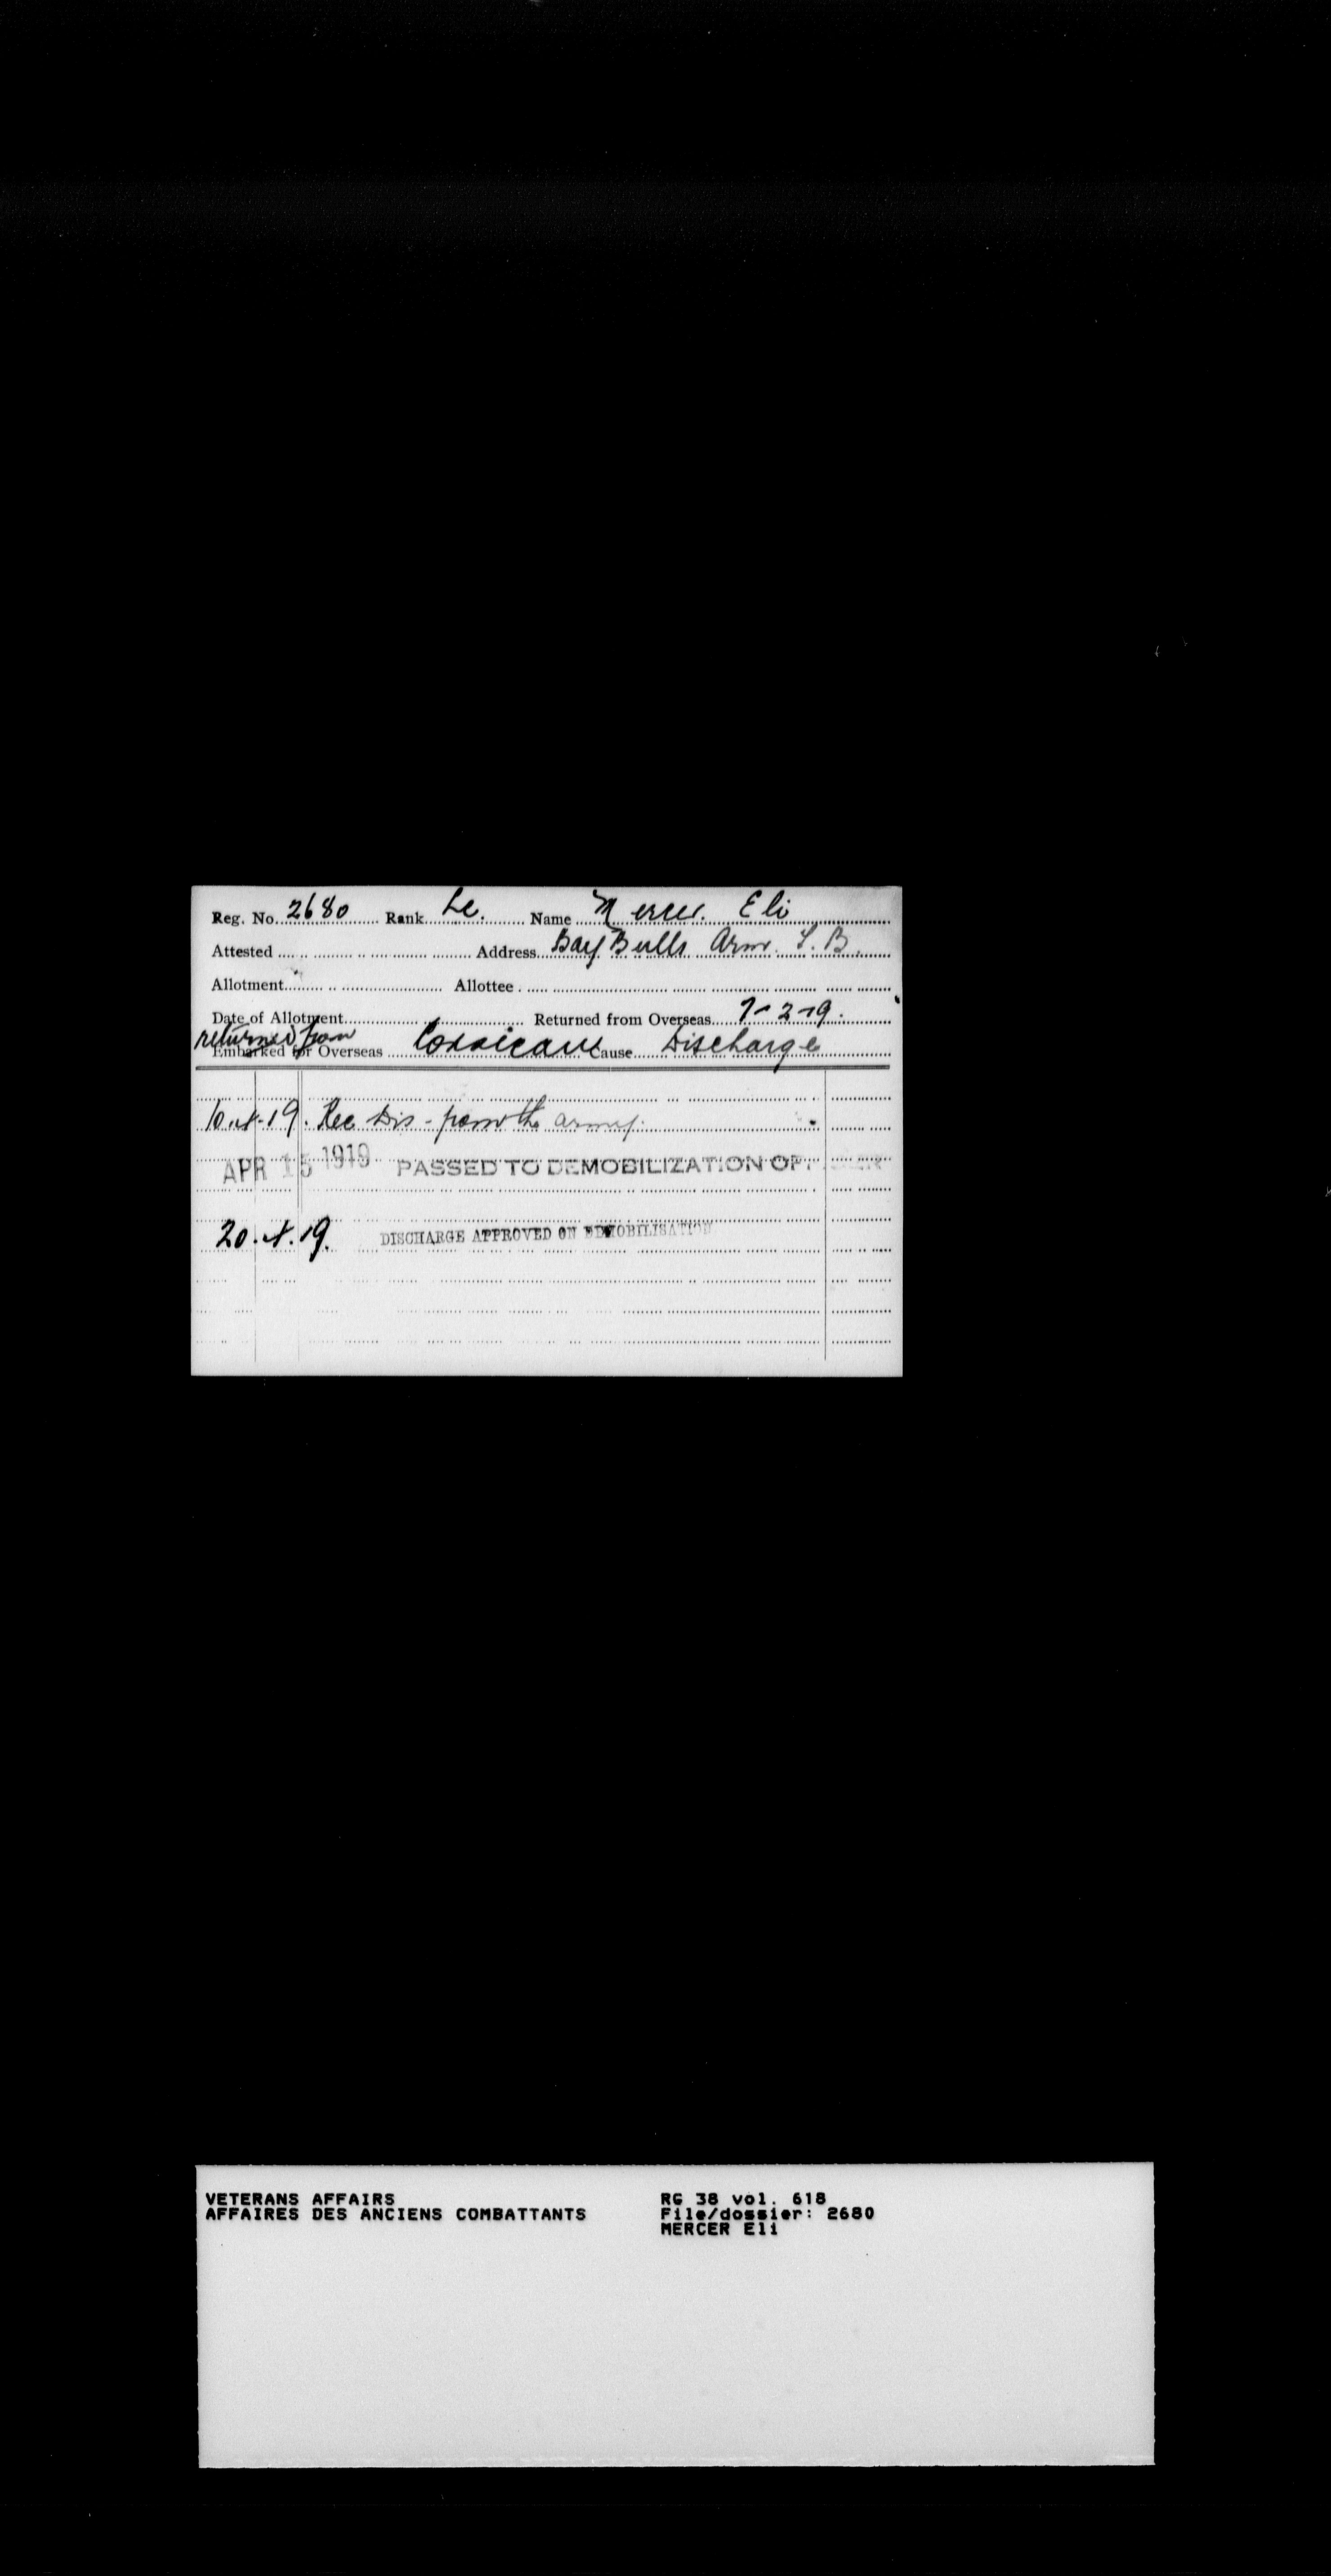 Reg. No. 2680 Rank Lc. Name Mercer. Eli
Attested Address Bay Bulls Arm. T. B.
Allotment Allottee
Date of Allotment Returned from Overseas 7-2-19.
returned from
Embarked for Overseas Corsican Cause Discharge
10.4.19. Rec Dis - from the army.
APR 15 1919 PASSED TO DEMOBILIZATION OFFICER
20.4.19. DISCHARGE APPROVED ON DEMOBILISATION
VETERANS AFFAIRS RG 38 vol. 618
AFFAIRES DES ANCIENS COMBATTANTS File/dossier: 2680
MERCER Eli